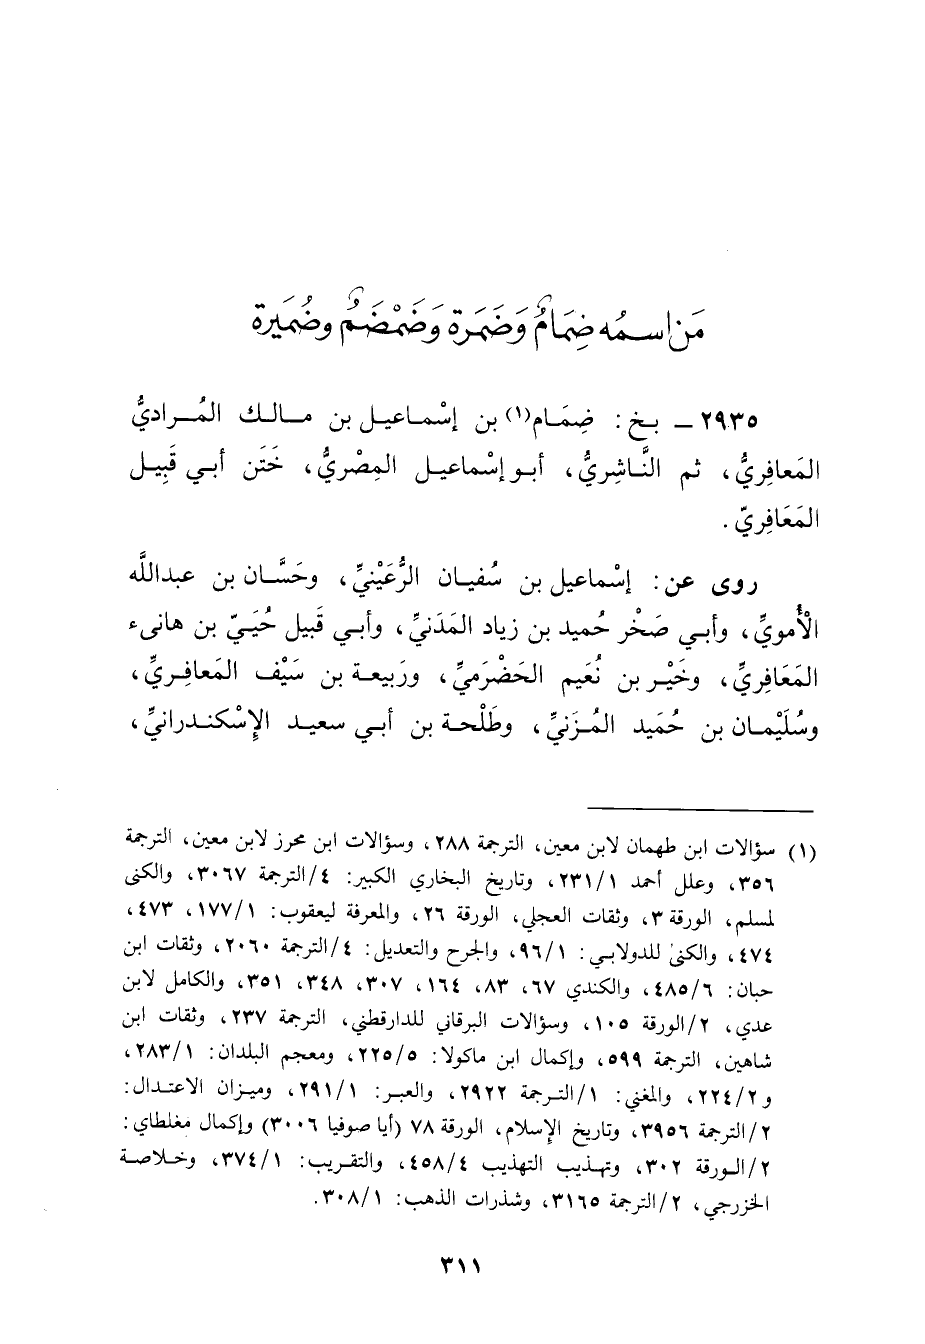 مَن اسمُه ضِمَامٌ وَضَمَرة وَضَمْضَمٌ وضُمَيرة
٢٩٣٥ ـ بخ : ضِمَام(١) بن إسْماعيل بن مالك المُراديُّ
المَعافِريُّ، ثم النَّاشِريُّ، أبو إسْماعيل المِصْريُّ، خَتَن أبي قَبِيل
المَعَافِريّ .
روى عن : إسْماعيل بن سُفيان الرُّعَيْنيِّ، وحَسَّان بن عبدالله
الأُمويِّ، وأبي صَخْر حُميد بن زياد المَدَنيِّ، وأبي قَبيل حُيَيّ بن هانىء
المَعَافِريِّ، وخَيْر بن نُعَيم الحَضْرَميِّ، ورَبيعة بن سَيْف المَعافِريِّ،
وسُلَيْمان بن حُمَيد المُزَنيِّ، وطَلْحة بن أبي سعيد الإِسْكندرانيِّ،
(١) سؤالات ابن طهمان لابن معين، الترجمة ٢٨٨، وسؤالات ابن محرز لابن معين، الترجمة
٣٥٦، وعلل أحمد ٢٣١/١، وتاريخ البخاري الكبير: ٤/الترجمة ٣٠٦٧، والكنى
لمسلم، الورقة ٣، وثقات العجلي، الورقة ٢٦، والمعرفة ليعقوب: ١٧٧/١، ٤٧٣،
٤٧٤، والكنىٰ للدولابي: ٩٦/١، والجرح والتعديل: ٤/الترجمة ٢٠٦٠، وثقات ابن
حبان: ٤٨٥/٦، والكندي ٦٧، ٨٣، ١٦٤، ٣٠٧، ٣٤٨، ٣٥١، والكامل لابن
عدي، ٢/الورقة ١٠٥، وسؤالات البرقاني للدارقطني، الترجمة ٢٣٧، وثقات ابن
شاهين، الترجمة ٥٩٩، وإكمال ابن ماكولا: ٢٢٥/٥، ومعجم البلدان: ٢٨٣/١،
و٢٢٤/٢، والمغني: ١/الترجمة ٢٩٢٢، والعبر: ٢٩١/١، وميزان الاعتدال:
٢/الترجمة ٣٩٥٦، وتاريخ الإسلام، الورقة ٧٨ (أيا صوفيا ٣٠٠٦) وإكمال مغلطاي:
٢/الورقة ٣٠٢، وتهذيب التهذيب ٤٥٨/٤، والتقريب: ٣٧٤/١، وخلاصة
الخزرجي، ٢/الترجمة ٣١٦٥، وشذرات الذهب: ٣٠٨/١.
٣١١